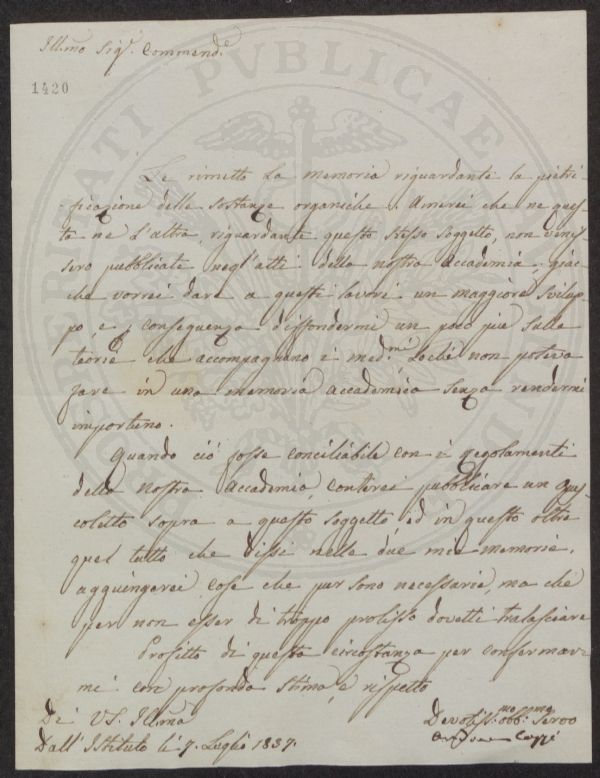 Ill.mo Sig.r Commend.e
1420
PROSPERITATI PVBLICAE
Le rimetto la memoria riguardante la pietri-
ficazione delle sostanze organiche. Amerei che ne ques-
ta ne l'altra, riguardante questo stesso soggetto, non venis-
sero pubblicate negl'atti della nostra accademia, giac-
che vorrei dare a questi lavori un maggiore svilup-
po, e conseguenza diffondermi un poco più sulle
teorie che accompagnano i med.mi, Lochè non poteva
fare in una memoria accademica senza rendermi
importuno.
Quando ciò fosse conciliabile con i regolamenti
della nostra accademia, conterei pubblicare un opus-
coletto sopra a questo soggetto, ed in questo oltre
quel tutto che dissi nelle due mie memorie,
aggiungerei cose che pur sono necessarie, ma che
per non esser di troppo prolisso dovetti tralasciare
Profitto di questa circostanza per confermar-
mi con profonda stima, e rispetto
Di VS. Ill.ma
Devotiss.mo obb.mo Servo
Dall'Istituto li 7. Luglio 1837.